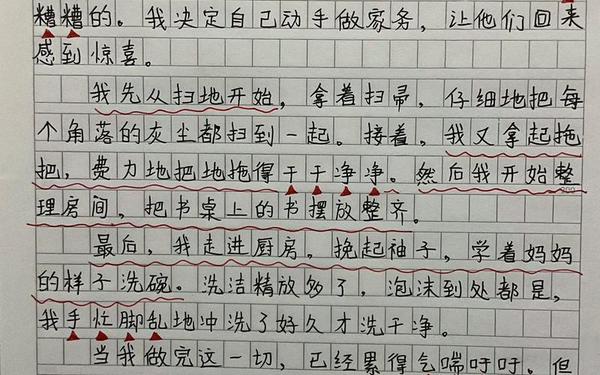 糟糟的。我决定自己动手做家务，让他们回来
感到惊喜。
我先从扫地开始，拿着扫帚，仔细地把每
个角落的灰尘都扫到一起。接着，我又拿起拖
把，费力地把地拖得干干净净。然后我开始整
理房间，把书桌上的书摆放整齐。
最后，我走进厨房，挽起袖子，学着妈妈
的样子洗碗。洗洁精放多了，泡沫到处都是，
我手忙脚乱地冲洗了好久才洗干净。
当我做完这一切，已经累得气喘吁吁。但